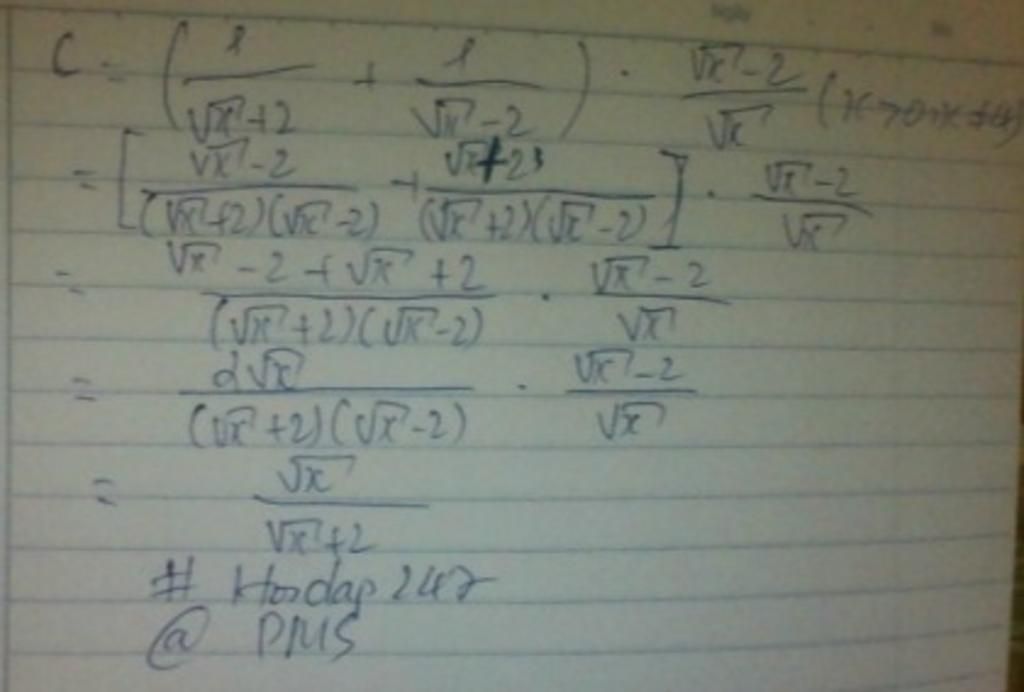 C = (1/(√x+2) + 1/(√x-2)) · (√x-2)/√x (x>0; x≠4)
= [(√x-2)/((√x+2)(√x-2)) + (√x+2)/((√x+2)(√x-2))] · (√x-2)/√x
= (√x-2+√x+2)/((√x+2)(√x-2)) · (√x-2)/√x
= 2√x/((√x+2)(√x-2)) · (√x-2)/√x
= √x/(√x+2)
# Hoidap 247
@ PMS